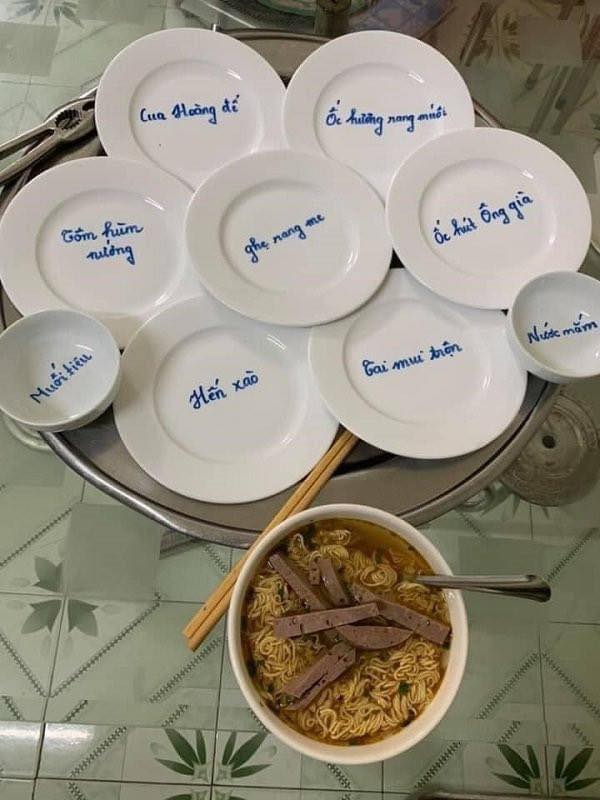 Cua Hoàng đế
Ốc hương rang muối
Tôm hùm
nướng
ghẹ rang me
Ốc hút Ông già
Muối tiêu
Hến xào
Tai mui trộn
Nước mắm